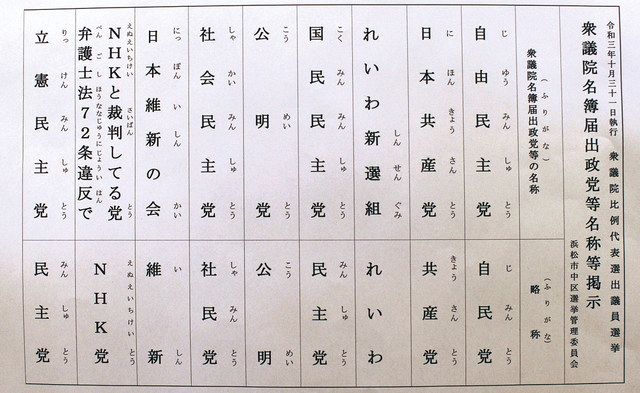 令和三年十月三十一日執行　衆議院比例代表選出議員選挙
衆議院名簿届出政党等名称等掲示
浜松市中区選挙管理委員会
（ふりがな）
衆議院名簿届出政党等の名称
（ふりがな）
略称
じゆうみんしゅとう
自由民主党
じみんとう
自民党
にほんきょうさんとう
日本共産党
きょうさんとう
共産党
しんせんぐみ
れいわ新選組
れいわ
こくみんみんしゅとう
国民民主党
みんしゅとう
民主党
こうめいとう
公明党
こうめい
公明
しゃかいみんしゅとう
社会民主党
しゃみんとう
社民党
にっぽんいしんかい
日本維新の会
いしん
維新
えぬえいちけい　さいばん　とう
NHKと裁判してる党
べんごしほうななじゅうにじょういはん
弁護士法72条違反で
えぬえいちけいとう
NHK党
りっけんみんしゅとう
立憲民主党
みんしゅとう
民主党